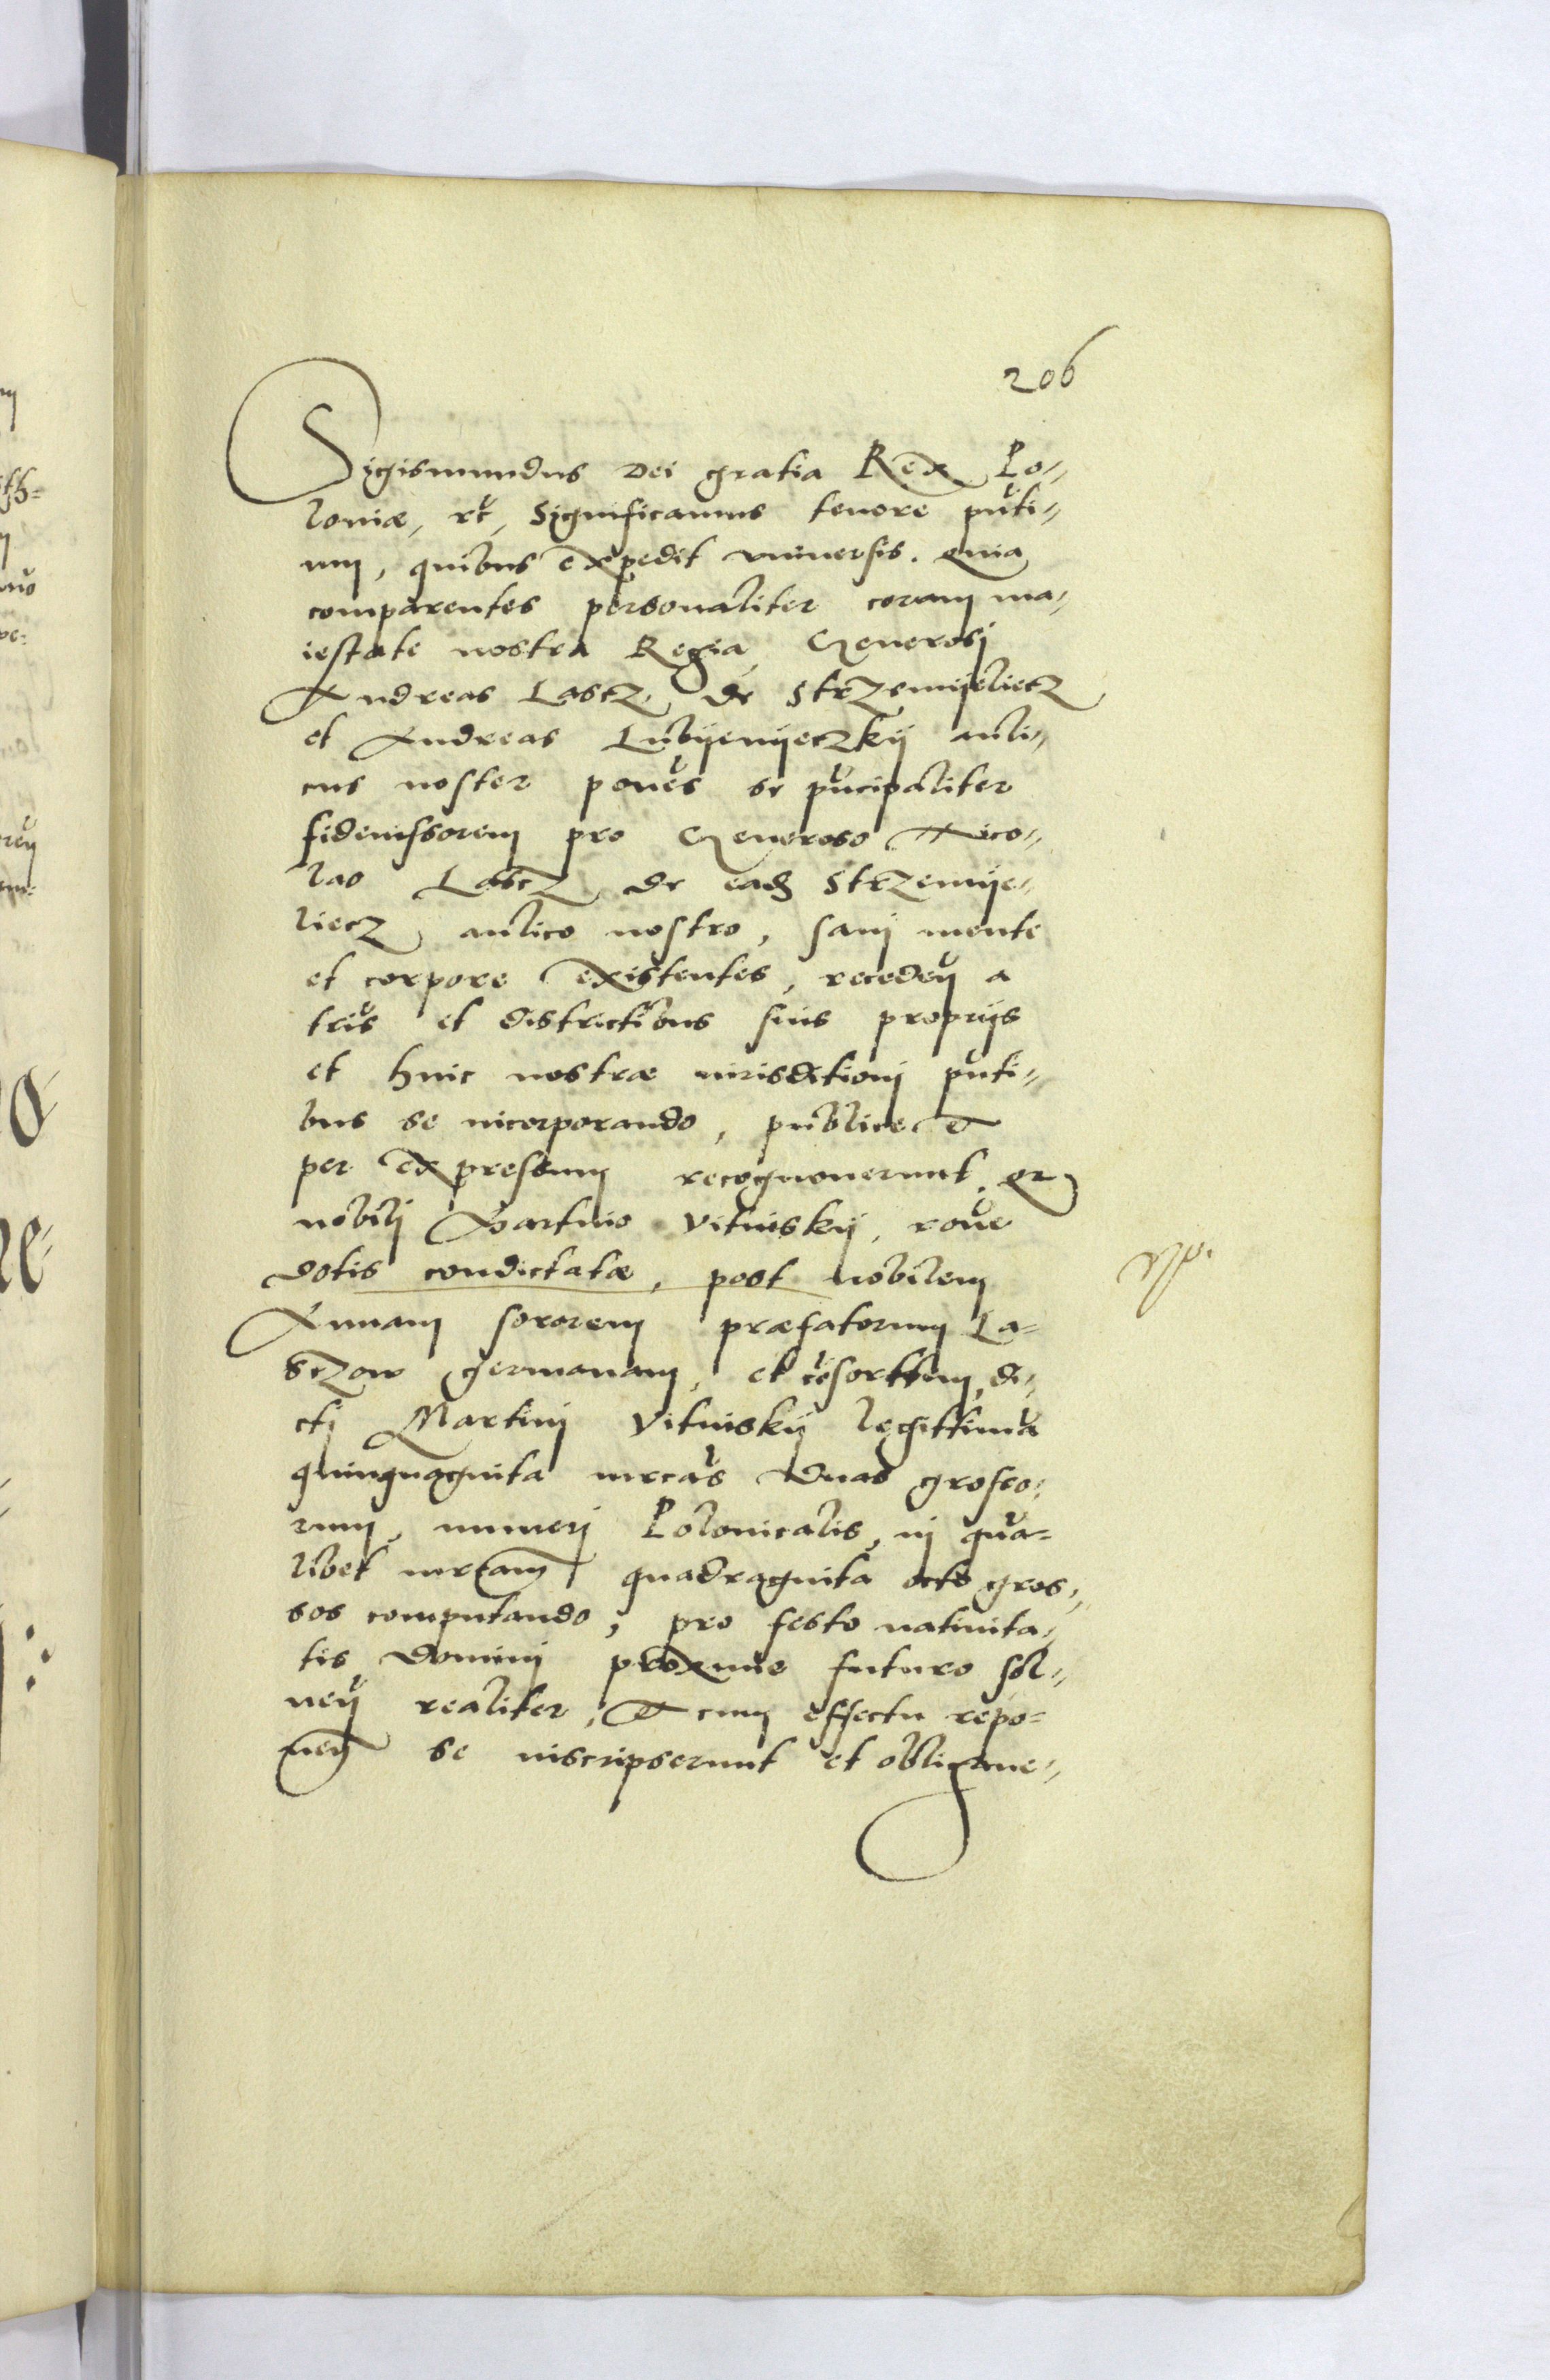 206
Sigismundus Dei gratia Rex Po-
loniæ, etc, Significamus tenore pnti-
um, quibus expedit vniuersis. Quia
comparentes personaliter coram ma-
iestate nostra Regia, Generosi
Andreas Lascz de Strzemijeliecz
et Andreas Lubyenyeczky auli-
cus noster ponens se principaliter
fideiussorem pro Generoso Nico-
lao Lascz de eadem Strzemije-
liecz aulico nostro, sani mente
et corpore existentes, receden a
tris et districtibus suis proprijs
et huic nostræ iurisditioni pnti-
bus se incorporando, publice et
per expressum recognouerunt. Qr
nobili Martino Vitinsky, rone
dotis condictatæ, post nobilem
Annam sororem præfatorum La-
sczow germanam, et cosorttem, di-
cti Martini Vitinsky legittima
quinquaginta mrcas duas grosso-
rum, numeri Polonicalis, in qua-
libet mrcam quadraginta octo gros-
sos computando, pro festo natiuita-
tis Domini proxime futuro sol-
uen realiter, et cum effectu repo-
nen se inscripserunt et obligaue-